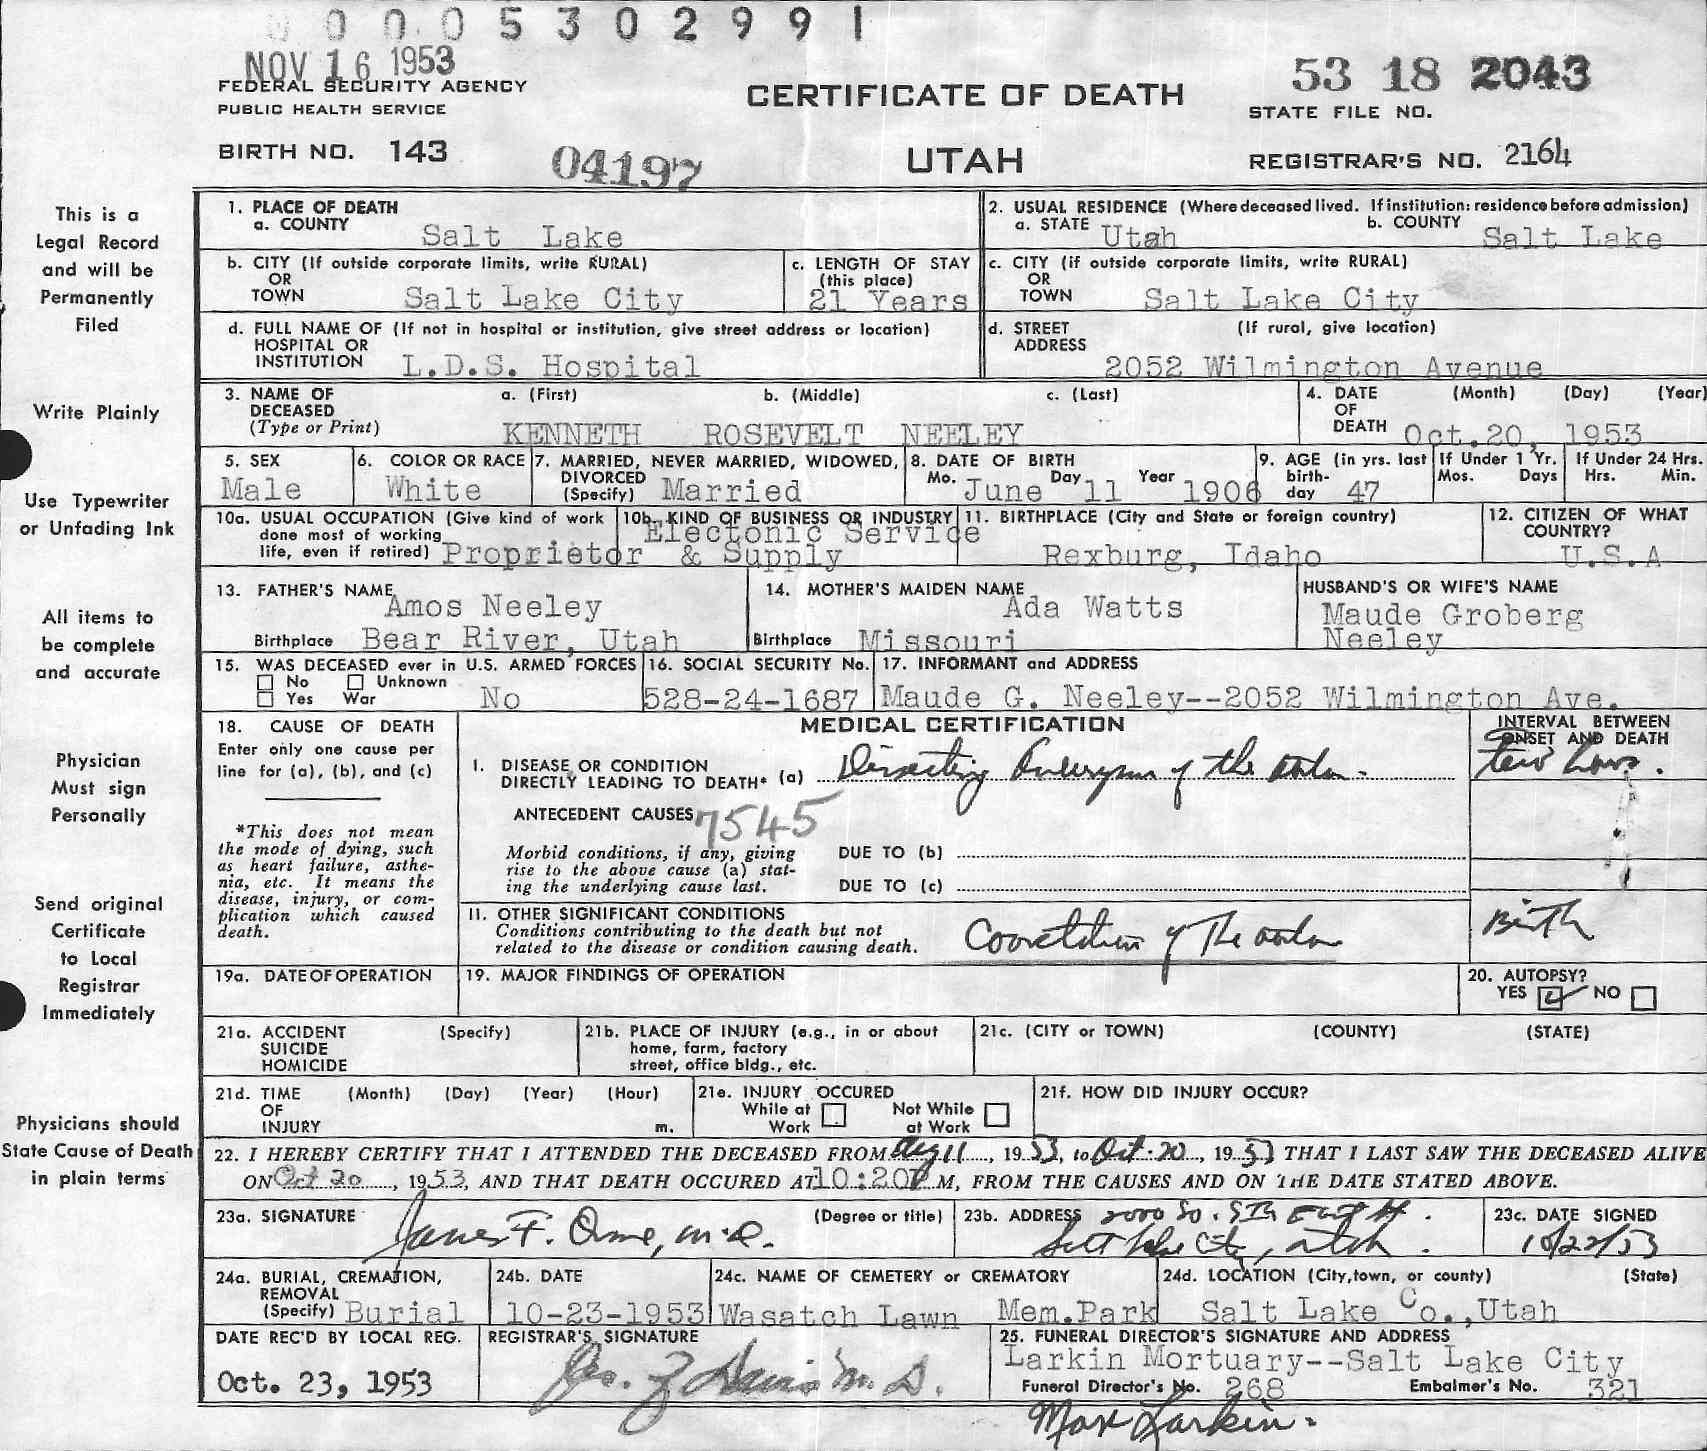 0 0 0 0 5 3 0 2 9 9 1
NOV 16 1953
FEDERAL SECURITY AGENCY
PUBLIC HEALTH SERVICE
BIRTH NO. 143
04197
CERTIFICATE OF DEATH
UTAH
53 18 2043
STATE FILE NO.
REGISTRAR'S NO. 2164
This is a
Legal Record
and will be
Permanently
Filed
Write Plainly
Use Typewriter
or Unfading Ink
All items to
be complete
and accurate
Physician
Must sign
Personally
Send original
Certificate
to Local
Registrar
Immediately
Physicians should
State Cause of Death
in plain terms
1. PLACE OF DEATH
a. COUNTY Salt Lake
2. USUAL RESIDENCE (Where deceased lived. If institution: residence before admission)
a. STATE Utah b. COUNTY Salt Lake
b. CITY (If outside corporate limits, write RURAL)
OR
TOWN Salt Lake City
c. LENGTH OF STAY
(this place)
21 Years
c. CITY (if outside corporate limits, write RURAL)
OR
TOWN Salt Lake City
d. FULL NAME OF (If not in hospital or institution, give street address or location)
HOSPITAL OR
INSTITUTION L.D.S. Hospital
d. STREET (If rural, give location)
ADDRESS
2052 Wilmington Avenue
3. NAME OF a. (First) b. (Middle) c. (Last)
DECEASED
(Type or Print) KENNETH ROSEVELT NEELEY
4. DATE (Month) (Day) (Year)
OF
DEATH Oct.20, 1953
5. SEX
Male
6. COLOR OR RACE
White
7. MARRIED, NEVER MARRIED, WIDOWED,
DIVORCED
(Specify) Married
8. DATE OF BIRTH
Mo. June Day 11 Year 1906
9. AGE (in yrs. last
birth-
day 47
If Under 1 Yr.
Mos. Days
If Under 24 Hrs.
Hrs. Min.
10a. USUAL OCCUPATION (Give kind of work
done most of working
life, even if retired) Proprietor
10b. KIND OF BUSINESS OR INDUSTRY
Electonic Service
& Supply
11. BIRTHPLACE (City and State or foreign country)
Rexburg, Idaho
12. CITIZEN OF WHAT
COUNTRY?
U.S.A
13. FATHER'S NAME
Amos Neeley
Birthplace Bear River, Utah
14. MOTHER'S MAIDEN NAME
Ada Watts
Birthplace Missouri
HUSBAND'S OR WIFE'S NAME
Maude Groberg
Neeley
15. WAS DECEASED ever in U.S. ARMED FORCES
No Unknown
Yes War No
16. SOCIAL SECURITY No.
528-24-1687
17. INFORMANT and ADDRESS
Maude G. Neeley--2052 Wilmington Ave.
18. CAUSE OF DEATH
Enter only one cause per
line for (a), (b), and (c)
*This does not mean
the mode of dying, such
as heart failure, asthe-
nia, etc. It means the
disease, injury, or com-
plication which caused
death.
MEDICAL CERTIFICATION
INTERVAL BETWEEN
ONSET AND DEATH
I. DISEASE OR CONDITION
DIRECTLY LEADING TO DEATH* (a) Dissecting Aneurysm of the aorta.
few hours.
ANTECEDENT CAUSES 7545
Morbid conditions, if any, giving
rise to the above cause (a) stat-
ing the underlying cause last.
DUE TO (b)
DUE TO (c)
II. OTHER SIGNIFICANT CONDITIONS
Conditions contributing to the death but not
related to the disease or condition causing death.
of the aorta
Birth
19a. DATE OF OPERATION
19. MAJOR FINDINGS OF OPERATION
20. AUTOPSY?
YES NO
21a. ACCIDENT (Specify)
SUICIDE
HOMICIDE
21b. PLACE OF INJURY (e.g., in or about
home, farm, factory
street, office bldg., etc.
21c. (CITY or TOWN) (COUNTY) (STATE)
21d. TIME (Month) (Day) (Year) (Hour)
OF
INJURY m.
21e. INJURY OCCURED
While at Work Not While at Work
21f. HOW DID INJURY OCCUR?
22. I HEREBY CERTIFY THAT I ATTENDED THE DECEASED FROM Aug 11, 1953, to Oct. 20, 1953 THAT I LAST SAW THE DECEASED ALIVE
ON Oct 20, 1953, AND THAT DEATH OCCURED AT 10:20P M, FROM THE CAUSES AND ON THE DATE STATED ABOVE.
23a. SIGNATURE (Degree or title)
James F. Orme, M.D.
23b. ADDRESS 2000 So. 9th East St.
Salt Lake City, Utah.
23c. DATE SIGNED
10/22/53
24a. BURIAL, CREMATION,
REMOVAL
(Specify) Burial
24b. DATE
10-23-1953
24c. NAME OF CEMETERY or CREMATORY
Wasatch Lawn Mem.Park
24d. LOCATION (City, town, or county) (State)
Salt Lake Co., Utah
DATE REC'D BY LOCAL REG.
Oct. 23, 1953
REGISTRAR'S SIGNATURE
Davis M.D.
25. FUNERAL DIRECTOR'S SIGNATURE AND ADDRESS
Larkin Mortuary--Salt Lake City
Funeral Director's No. 268 Embalmer's No. 321
Max Larkin.